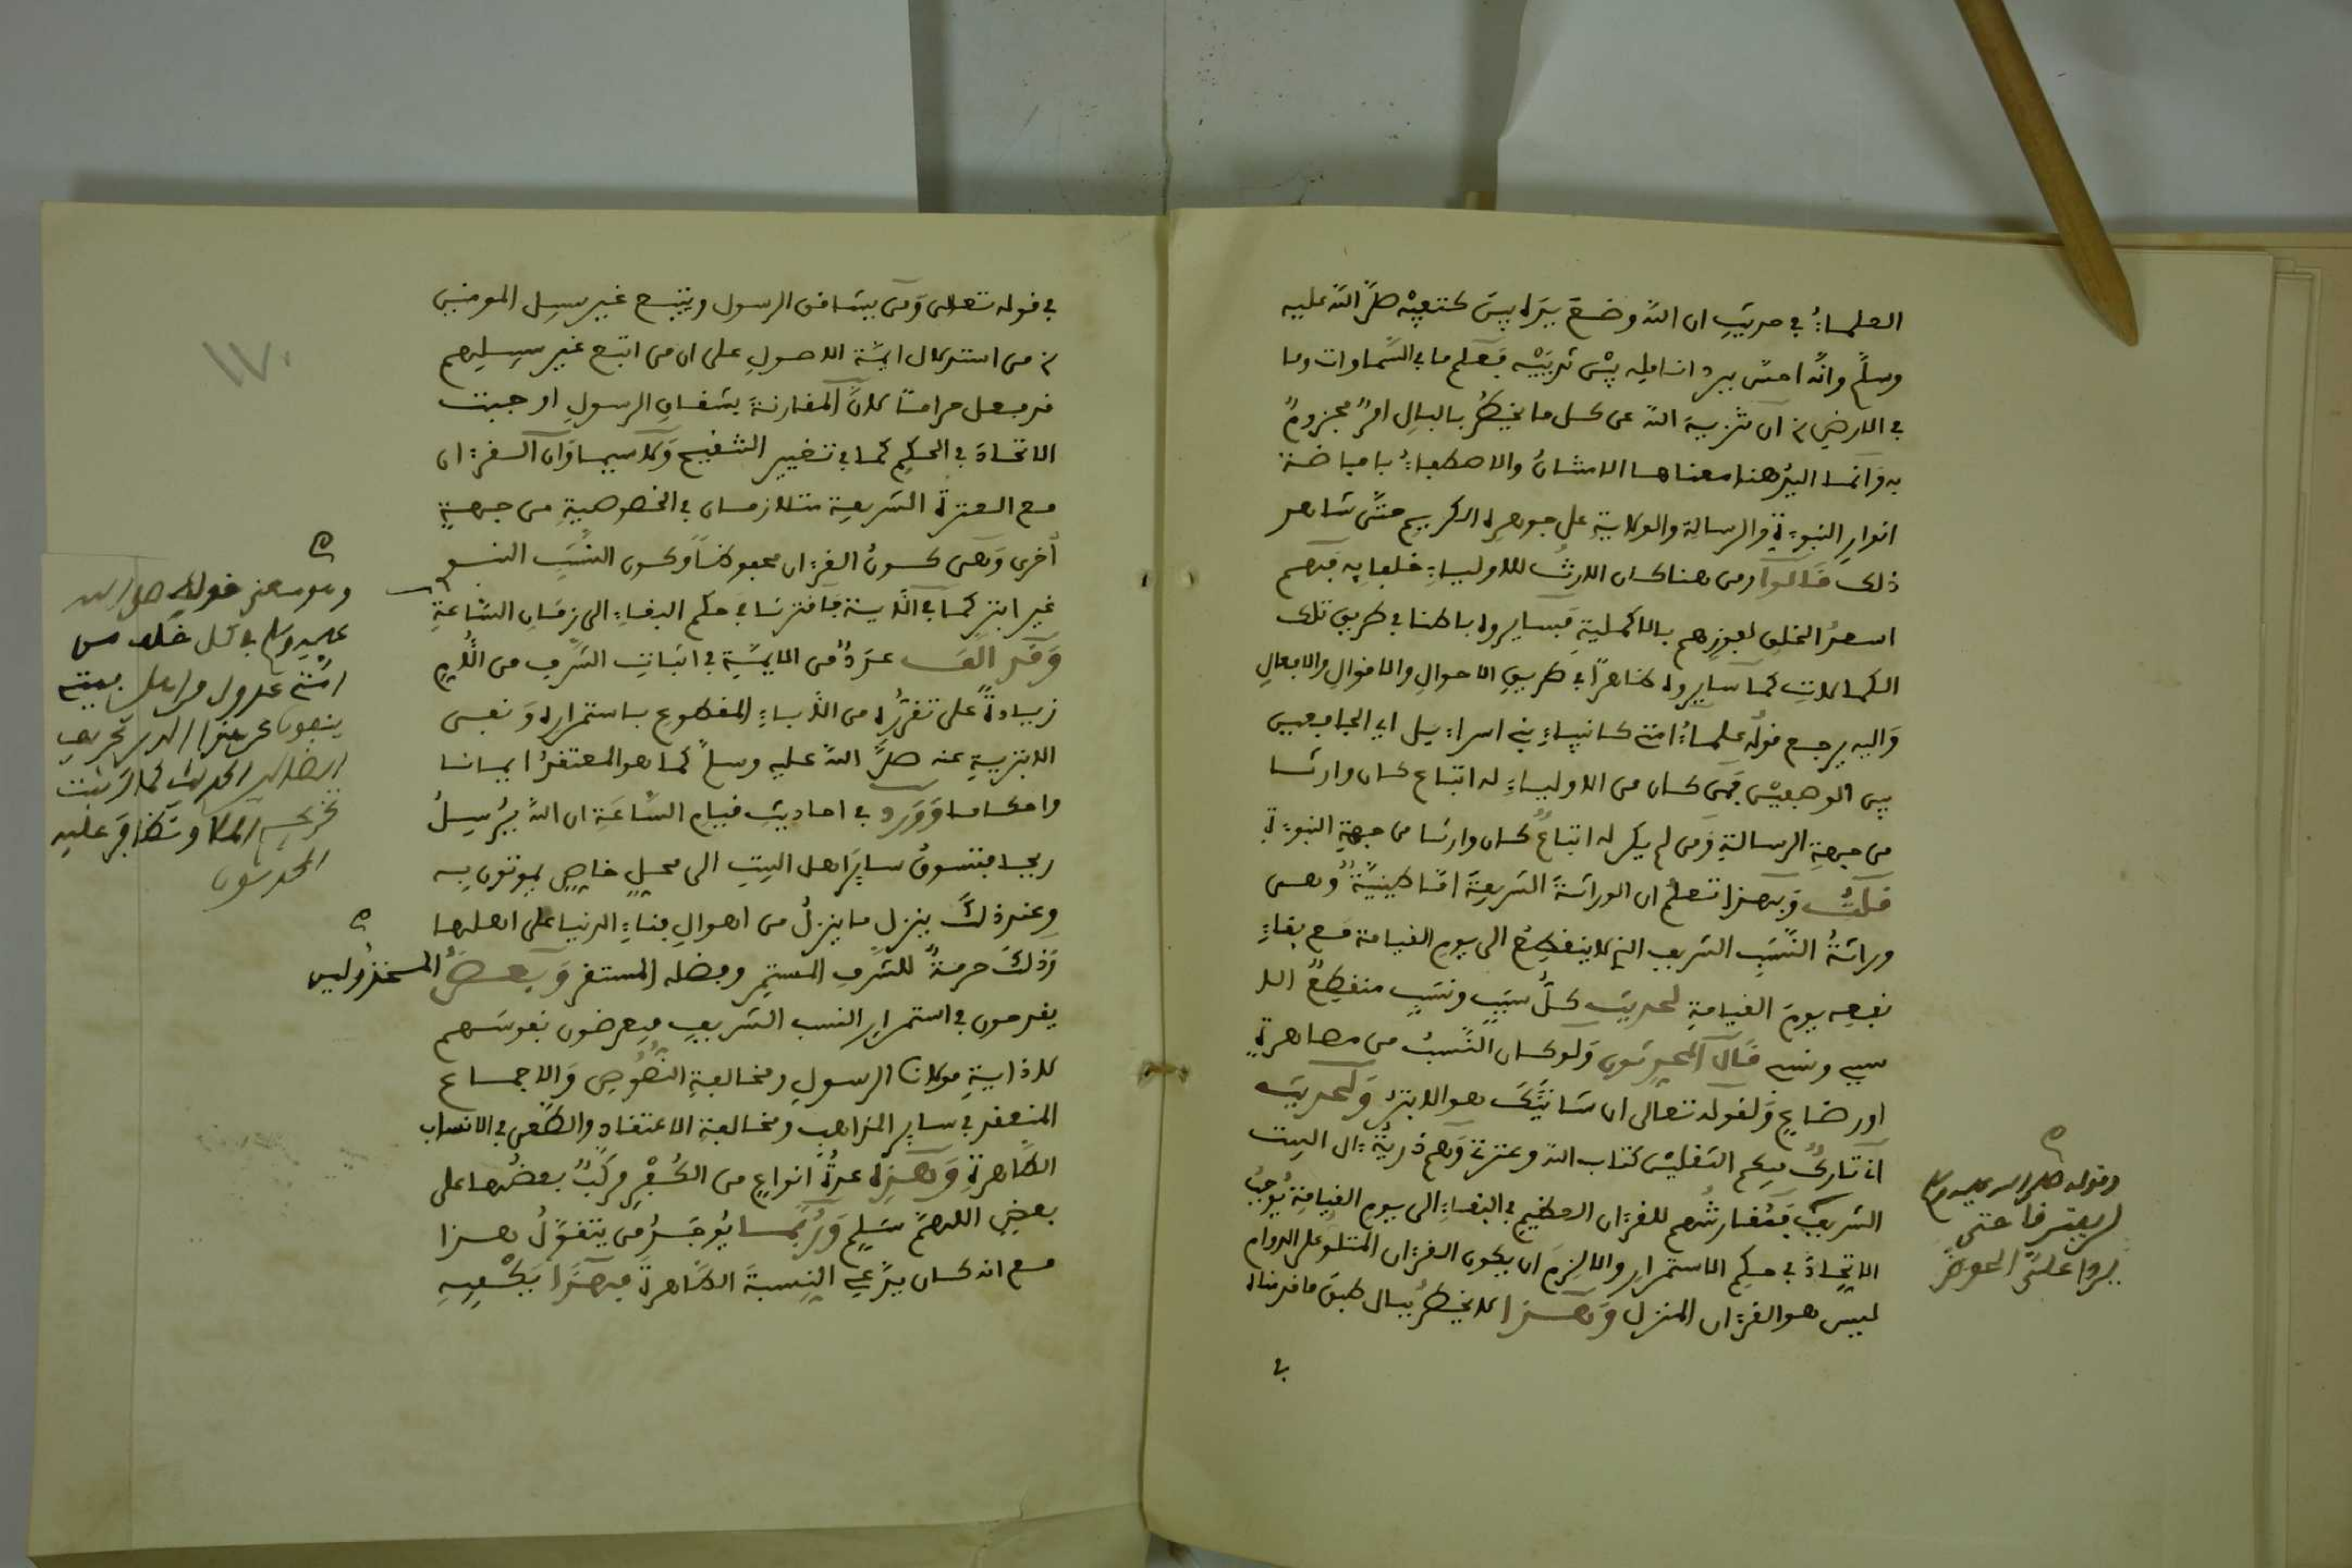 العلماء في حديث ان الله وضع يده بين كتفيه صلى الله عليه
وسلم وانه احس ببرد انامله بين ثدييه فعلم ما في السماوات وما
في الارض ان تنزيه الله عن كل ما يخطر بالبال امر مجزوم
به وانما اليد هنا معناها الامتنان والاصطفاء بافاضة
انوار النبوءة والرسالة والولاية على جوهره الكريم حتى شاهد
ذلك قالوا ومن هنا كان الارث للاولياء خلفايه فهم
اسعد الخلق لفوزهم بالاكملية فسايروه باطنا في طريق تلك
الكمالات كما سايروه ظاهرا في طريق الاحوال والاقوال والافعال
واليه يرجع قوله علماء امتي كانبياء بني اسراءيل اي الجامعين
بين الوجهين فمن كان من الاولياء له اتباع كان وارثا
من جهة الرسالة ومن لم يكن له اتباع كان وارثا من جهة النبوءة
قلت وبهذا تعلم ان الوراثة الشريعة اما طينية وهي
وراثة النسب الشريف الذي لا ينقطع الى يوم القيامة مع بقاء
نفعه يوم القيامة لحديث كل سبب ونسب منقطع الا
سببي ونسبي قال المحدثون ولو كان النسب من مصاهرة
او رضاع ولقوله تعالى ان شانئك هو الابتر ولحديث
اني تارك فيكم الثقلين كتاب الله وعترتي وهم ذرية ءال البيت
الشريف فمقارنتهم للقرءان العظيم في البقاء الى يوم القيامة يوجب
الاتحاد في حكم الاستمرار والا لزم ان يكون القرءان المتلو على الدوام
ليس هو القرءان المنزل وهذا لا يخطر ببال طبق ما قررناه
في
وقوله صلى الله عليه وسلم
لن يفترقا حتى
يردا علي الحوض
في قوله تعالى ومن يشاقق الرسول ويتبع غير سبيل المومنين
من استدلال ايمة الاصول على ان من اتبع غير سبيلهم
فد فعل حراما لان المقارنة بشقاق الرسول اوجبت
الاتحاد في الحكم كما في تغيير الشفيع ولا سيما وان القرءان
مع العترة الشريعة متلازمان في الخصوصية من جهة
اخرى وهي كون القرءان محفوظا وكون النسب النبو
غير ابتر كما في الاية فافترنا في حكم البقاء الى زمان الساعة
وقد الف عدة من الايمة في اثبات الشرف من الام
زيادة على تقرره من الاباء المقطوع باستمراره ونفي
الابترية عنه صلى الله عليه وسلم كما هو المعتقد ايمانا
واحكاما وورد في احاديث قيام الساعة ان الله يرسل
ريحا فتسوق ساير اهل البيت الى محل خاص يموتون به
وعند ذلك ينزل ما ينزل من اهوال فناء الدنيا على اهلها
وذلك حرمة للشرف المستمر وفضله المستقر وبعض المخذولين
يقدحون في استمرار النسب الشريف فيعرضون نفوسهم
لاذاية مولانا الرسول ومخالفة النصوص والاجماع
المنعقد في ساير المذاهب ومخالفة الاعتقاد والطعن في الانساب
الطاهرة وهذه عدة انواع من الكفر مركب بعضها على
بعض اللهم سلم وربما يوجد من يتقول هذا
مع انه كان يدعي النسبة الطاهرة فهذا يكفيه
وهو معنى قوله صلى الله
عليه وسلم في كل خلف من
امتي عدول من اهل بيتي
ينفون عن هذا الدين تحريف
الضالين الحديث
المحدثون
١٧٠